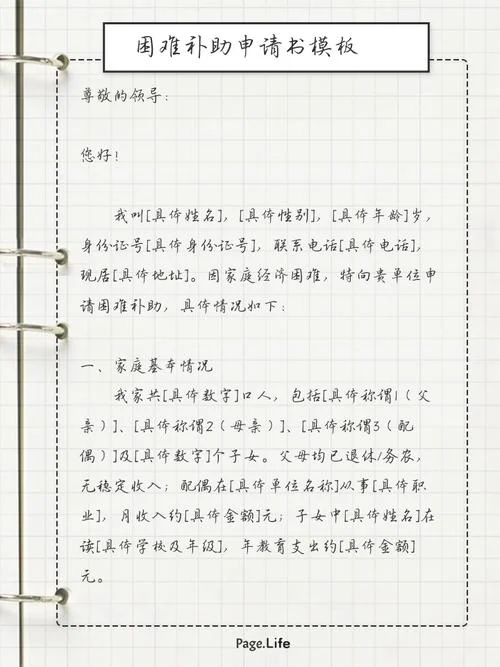 困难补助申请书模板
尊敬的领导：
您好！
我叫[具体姓名]，[具体性别]，[具体年龄]岁，
身份证号[具体身份证号]，联系电话[具体电话]，
现居[具体地址]。因家庭经济困难，特向贵单位申
请困难补助，具体情况如下：
一、家庭基本情况
我家共[具体数字]口人，包括[具体称谓1（父
亲）]、[具体称谓2（母亲）]、[具体称谓3（配
偶）]及[具体数字]个子女。父母均已退休/务农，
无稳定收入；配偶在[具体单位名称]从事[具体职
业]，月收入约[具体金额]元；子女中[具体姓名]在
读[具体学校及年级]，年教育支出约[具体金额]
元。
Page.Life